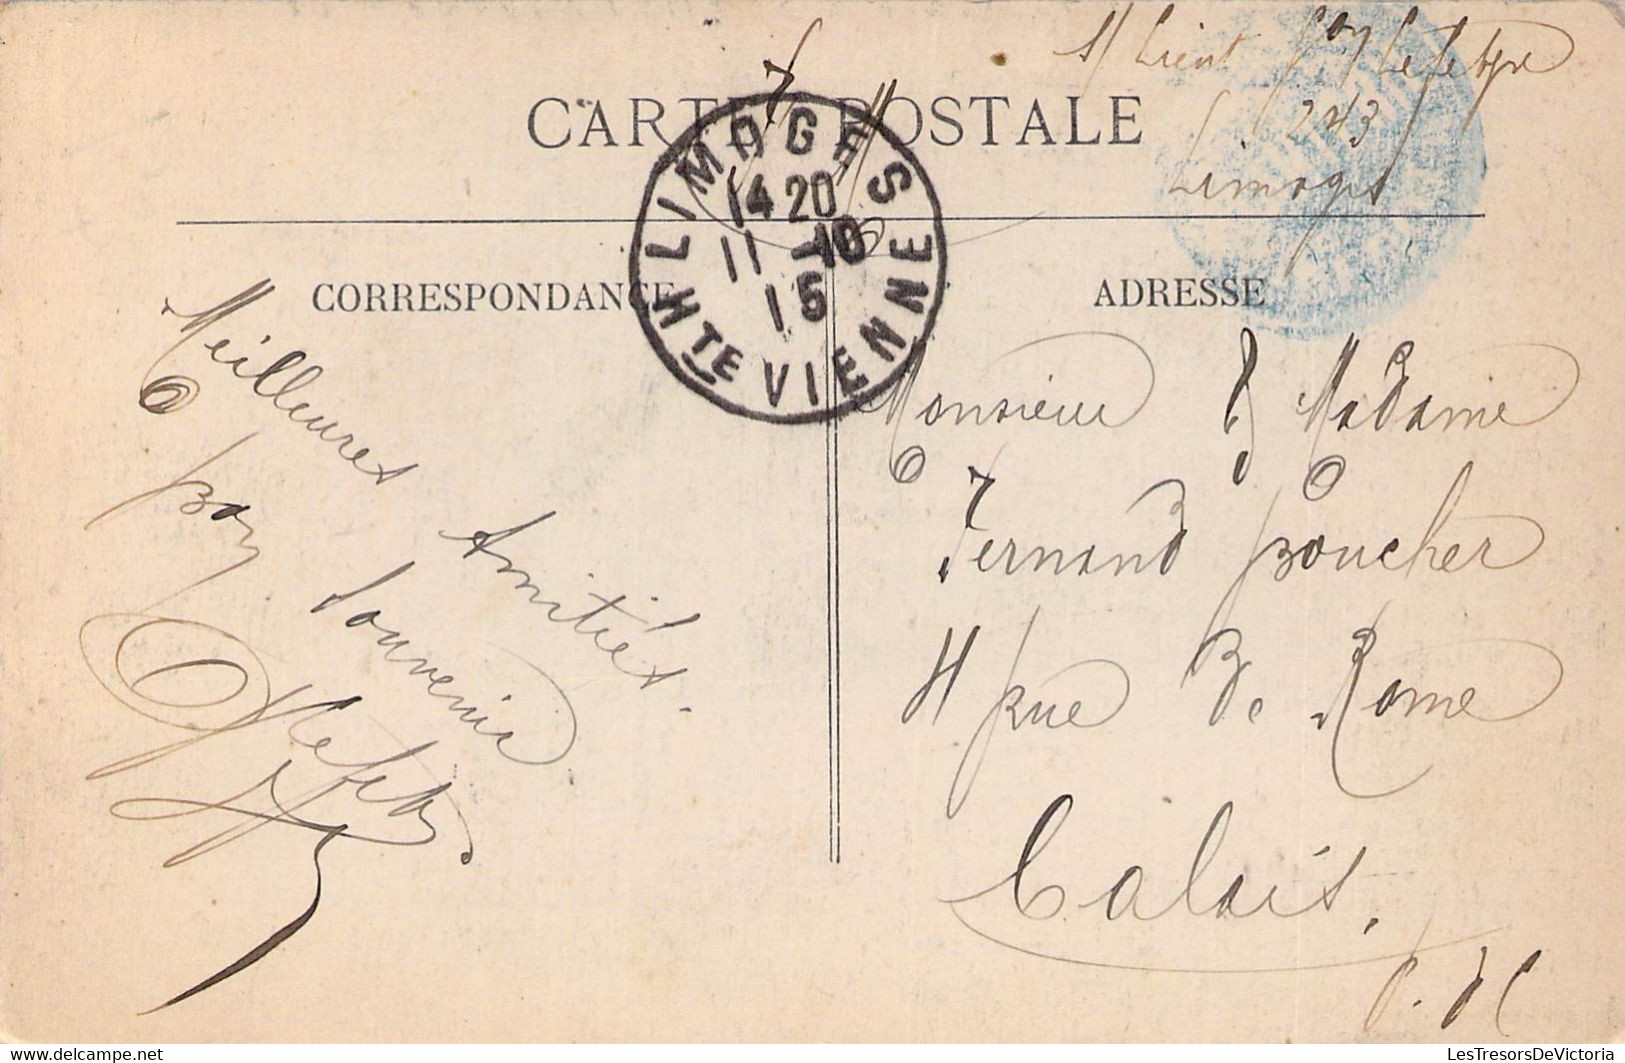 S/ Lieut Lefebvre
243
Limoges
F. M.
CARTE POSTALE
LIMOGES
14 20
11 10
15
HTE VIENNE
CORRESPONDANCE
Meilleures Amitiés.
Bon Souvenir
Lefebvre
ADRESSE
Monsieur & Madame
Fernand Boucher
4 Rue de Rome
Calais.
P. d C
LesTresorsDeVictoria.com